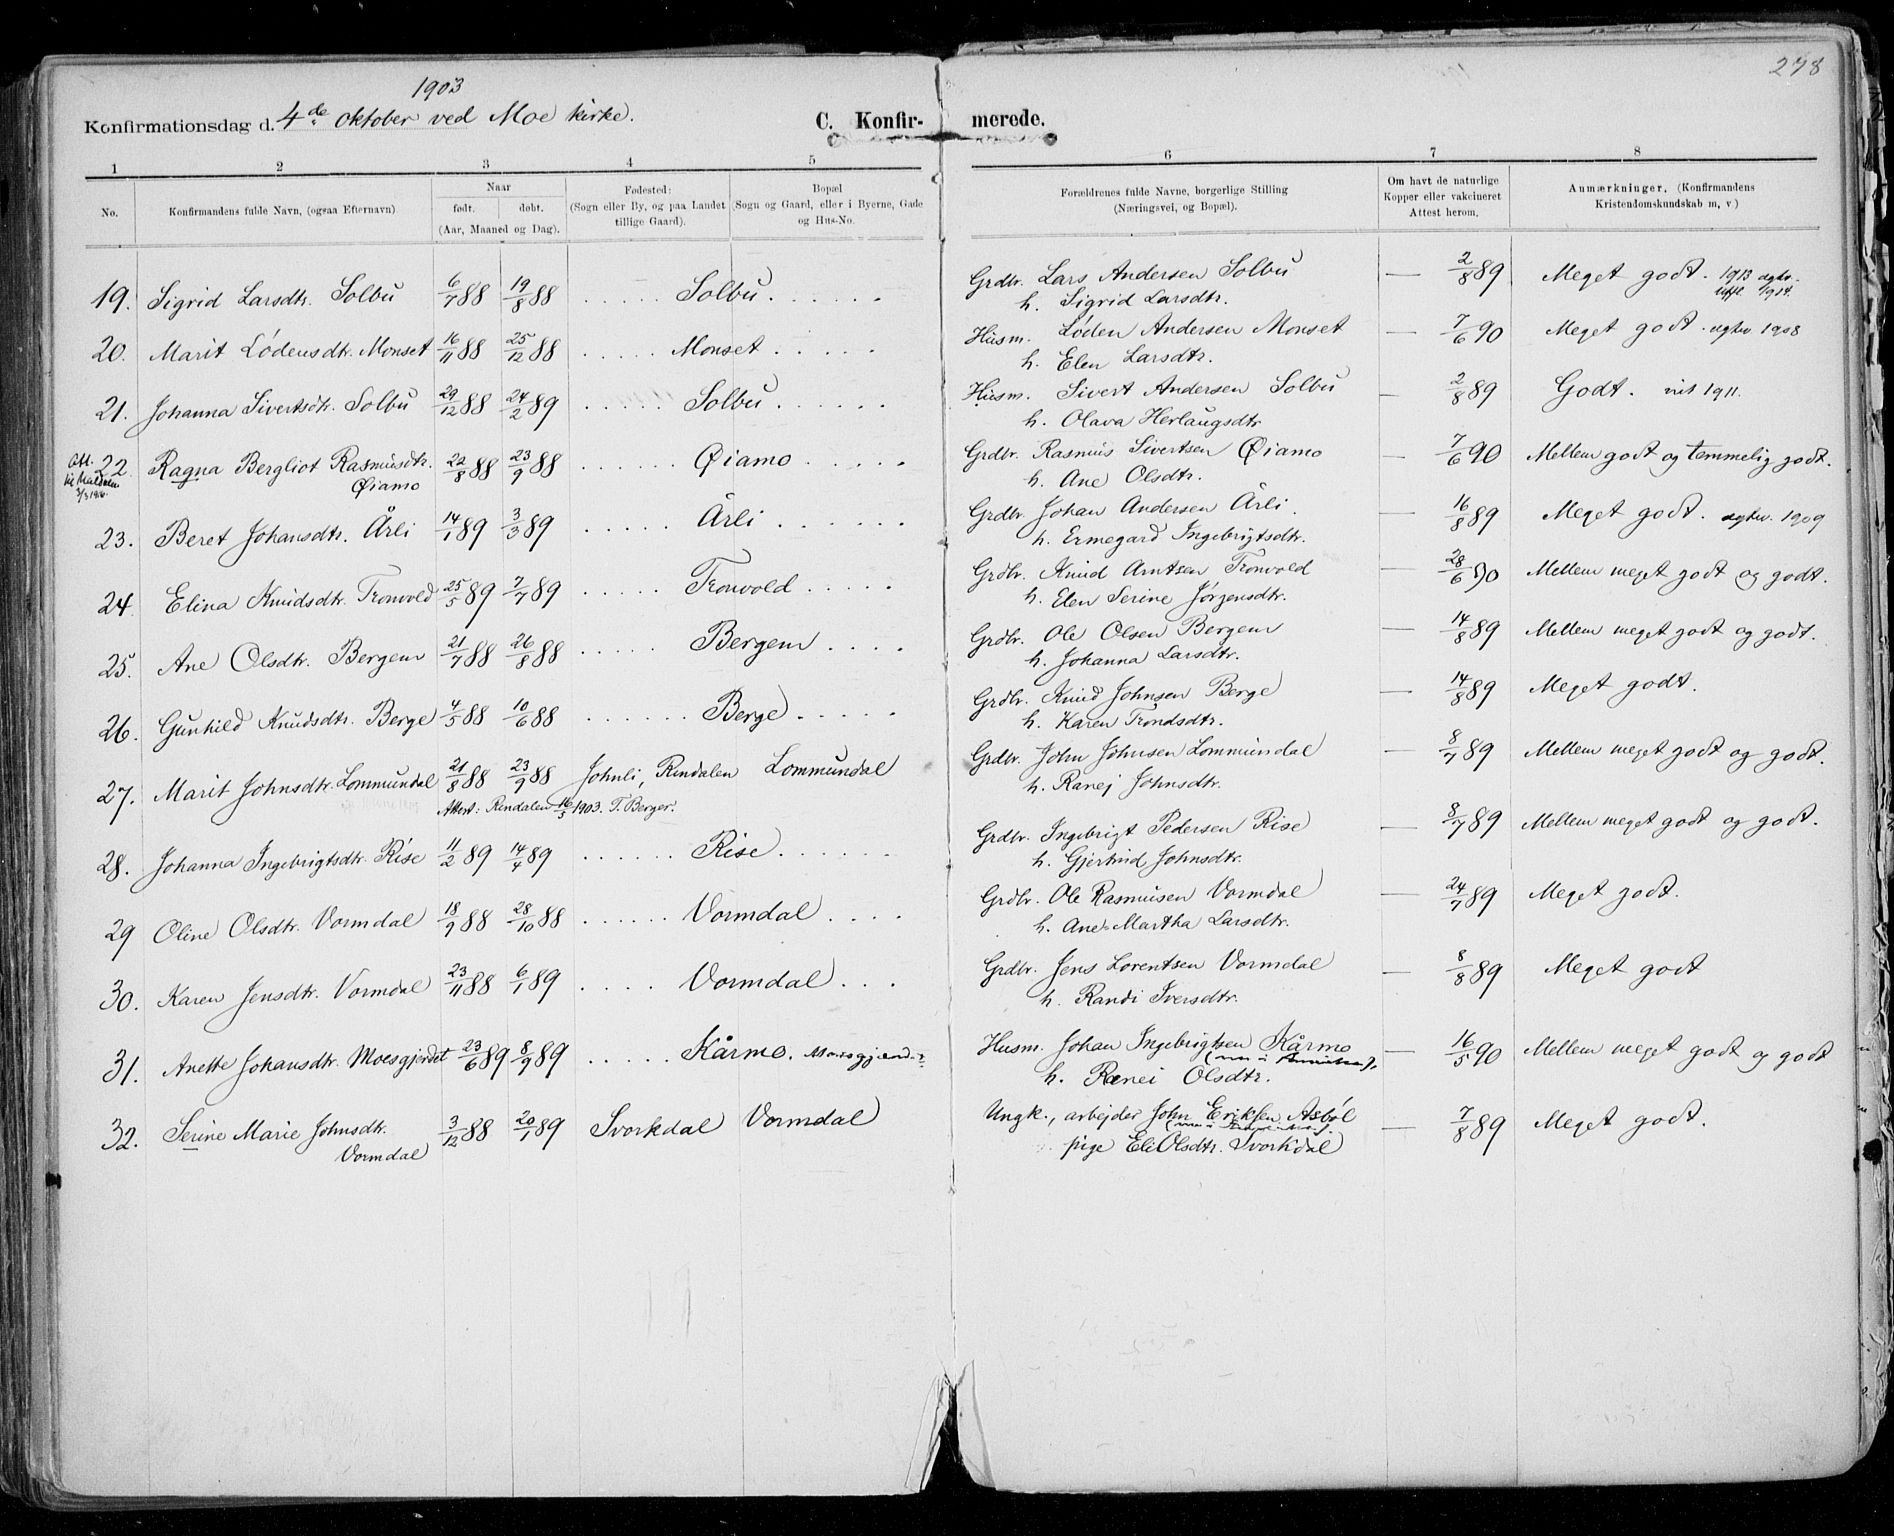 278
1903
Konfirmationsdag d. 4de oktober ved Moe kirke.
C. Konfirmerede.
1 2 3 4 5 6 7 8
No.
Konfirmandens fulde Navn, (ogsaa Efternavn)
Naar
født. døbt.
(Aar, Maaned og Dag).
Fødested:
(Sogn eller By, og paa Landet
tillige Gaard).
Bopæl
(Sogn og Gaard, eller i Byerne, Gade
og Hus-No.
Forældrenes fulde Navne, borgerlige Stilling
(Næringsvei, og Bopæl).
Om havt de naturlige
Kopper eller vakcineret
Attest herom.
Anmærkninger, (Konfirmandens
Kristendomskundskab m, v)
19. Sigrid Larsdtr. Solbu 6/7 88 19/8 88 ..... Solbu...... Grdbr. Lars Andersen Solbu — 2/8 89 Meget godt. 1913
h. Sigrid Larsdtr. 1914.
20. Marit Lødensdtr. Monset 16/11 88 25/12 88 ..... Monset..... Husm. Løden Andersen Monset — 7/6 90 Meget godt. 1908
h. Elen Larsdtr.
21. Johanna Sivertsdtr. Solbu 29/12 88 24/2 89 ..... Solbu...... Husm. Sivert Andersen Solbu — 2/8 89 Godt. 1911.
h. Olava Herlaugsdtr
Att.
22. Ragna Bergliot Rasmusdtr. 22/8 88 23/9 88 ...... Øiamo..... Grdbr. Rasmus Sivertsen Øiamo — 7/6 90 Mellem godt og temmelig godt.
Øiamo h. Ane Olsdtr.
23. Beret Johansdtr. Årli 14/1 89 3/3 89 ..... Årli ...... Grdbr. Johan Andersen Årli. — 16/8 89 Meget godt. 1909
h. Ermegard Ingebrigtsdtr.
24. Elina Knudsdtr. Tronvold 25/5 89 7/7 89 ..... Tronvold .... Grdbr. Knud Arntsen Tronvold — 28/6 90 Mellem meget godt og godt.
h. Elen Serine Jørgensdtr.
25. Ane Olsdtr. Bergem 21/7 88 26/8 88 ..... Bergem .... Grdbr. Ole Olsen Bergem — 14/8 89 Mellem meget godt og godt.
h. Johanna Larsdtr.
26. Gunhild Knudsdtr. Berge 4/5 88 10/6 88 ...... Berge ..... Grdbr. Knud Johnsen Berge — 14/8 89 Meget godt.
h. Karen Trondsdtr.
27. Marit Johnsdtr. Lommundal 21/8 88 23/9 88 Johnli, Rindalen Lommundal Grdbr. John Johnsen Lommundal — 8/7 89 Mellem meget godt og godt.
Attest: Rindalen 16/5 1903. T. Berger. h. Ranej Johnsdtr.
28. Johanna Ingebrigtsdtr. Rise 11/2 89 14/4 89 ...... Rise ...... Grdbr. Ingebrigt Pedersen Rise — 8/7 89 Mellem meget godt og godt.
h. Gjertrud Johnsdtr.
29 Oline Olsdtr. Vormdal 18/9 88 28/10 88 ...... Vormdal .... Grdbr. Ole Rasmusen Vormdal — 24/7 89 Meget godt.
h. Ane Martha Larsdtr.
30. Karen Jensdtr. Vormdal 23/11 88 6/1 89 .... Vormdal ... Grdbr. Jens Lorentsen Vormdal — 8/8 89 Meget godt
h. Randi Iversdtr.
31. Anette Johansdtr. Moesgjerdet 23/6 89 8/9 89 ..... Kårmo. Husm. Johan Ingebrigtsen Kårmo — 16/5 90 Mellem meget godt og godt
h. Ranei Olsdtr.
32. Serine Marie Johnsdtr. 3/12 88 20/1 89 Svorkdal Vormdal Ungk., arbejder John Eriksen Asbøl — 7/8 89 Meget godt.
Vormdal pige Eli Olsdtr. Svorkdal